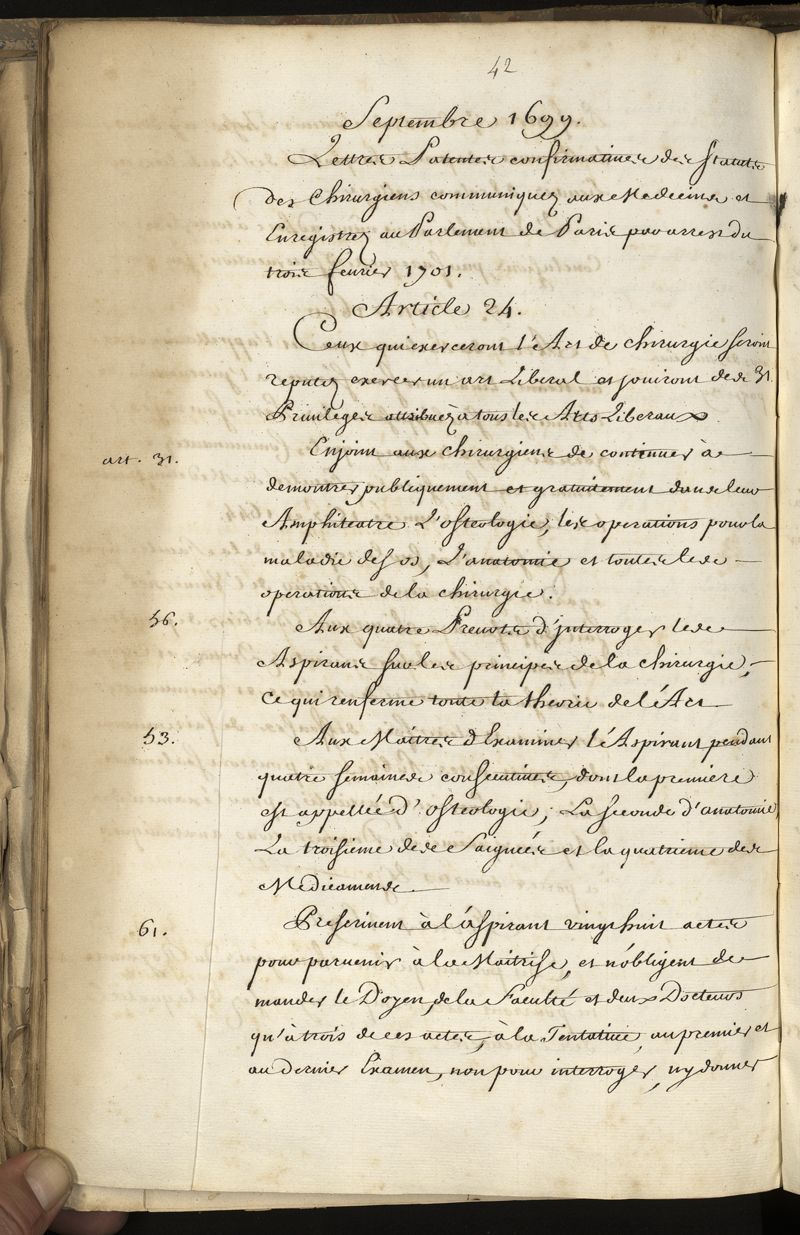 42
Septembre 1699.
Lettres Patentes confirmatives des statuts
des Chirurgiens communiquez aux Medecins et
Enregistrez au Parlement de Paris par arrest du
trois fevrier 1701.
Article 24.
Ceux qui exerceront l'Art de chirurgie seront
reputez exercer un art Liberal et jouiront de
Privileges attribuez a tous les Arts Liberaux
art. 31.
Enjoint aux chirurgiens de continuer à
demontrer publiquement et gratuitement dans leur
Amphiteatre L'osteologie, les operations pour la
maladie des os, L'anatomie et toutes les
operations de la chirurgie.
56.
Aux quatre Prevosts d'jnterroger les
Aspirans sur les principes de la chirurgie,
ce qui renferme toute la theorie de l'Art
53.
Aux Maitres d'Examiner l'Aspirant pendant
quatre semaines consecutives, dont la premiere
est appellée d'osteologie; La seconde d'anatomie,
La troisieme des Saignées et la quatrieme des
Medicamens.
61.
Prescrivent à l'aspirant vingt huit actes
pour parvenir à la Maitrise, et n'obligent de
mander le Doyen de la Faculté et deux Docteurs
qu'à trois de ces actes, à la Tentative, au premier et
au dernier Examen, non pour interroger, ny donner